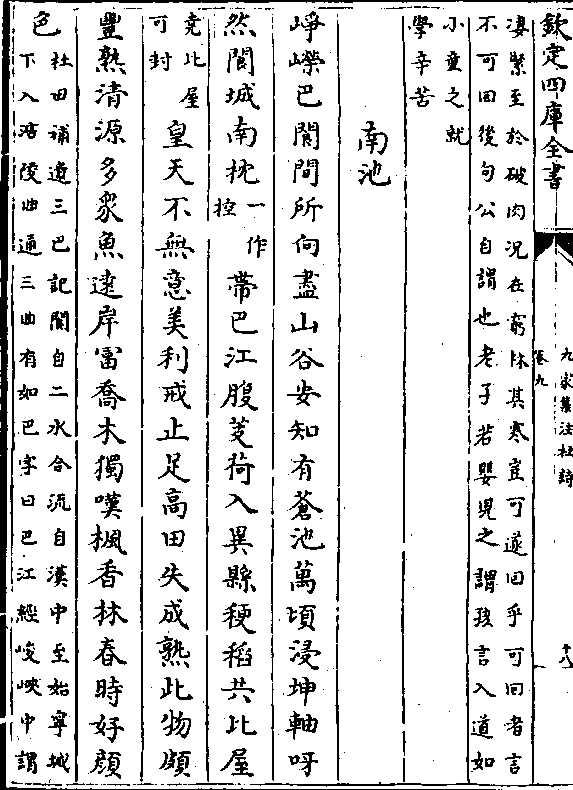 欽定四庫全書
九家集注杜詩
卷九
十八
凄緊至於破肉况在窮林其寒豈可遂回乎可回者言
不可回後句公自謂也老子若嬰兒之謂孩言入道如
小童之就
學辛苦
南池
崢嶸巴閬間所向盡山谷安知有蒼池萬頃浸坤軸呀
然閬城南枕一作控帶巴江腹芰荷入異縣稉稻共比屋
堯比屋可封皇天不無意美利戒止足高田失成熟此物頗
豐熟清源多衆魚遠岸富喬木獨嘆楓香林春時好顏
色杜田補遺三巴記閬自二水合流自漢中至始寧城
下入涪陵曲通三曲有如巴字曰巴江經峻峽中謂